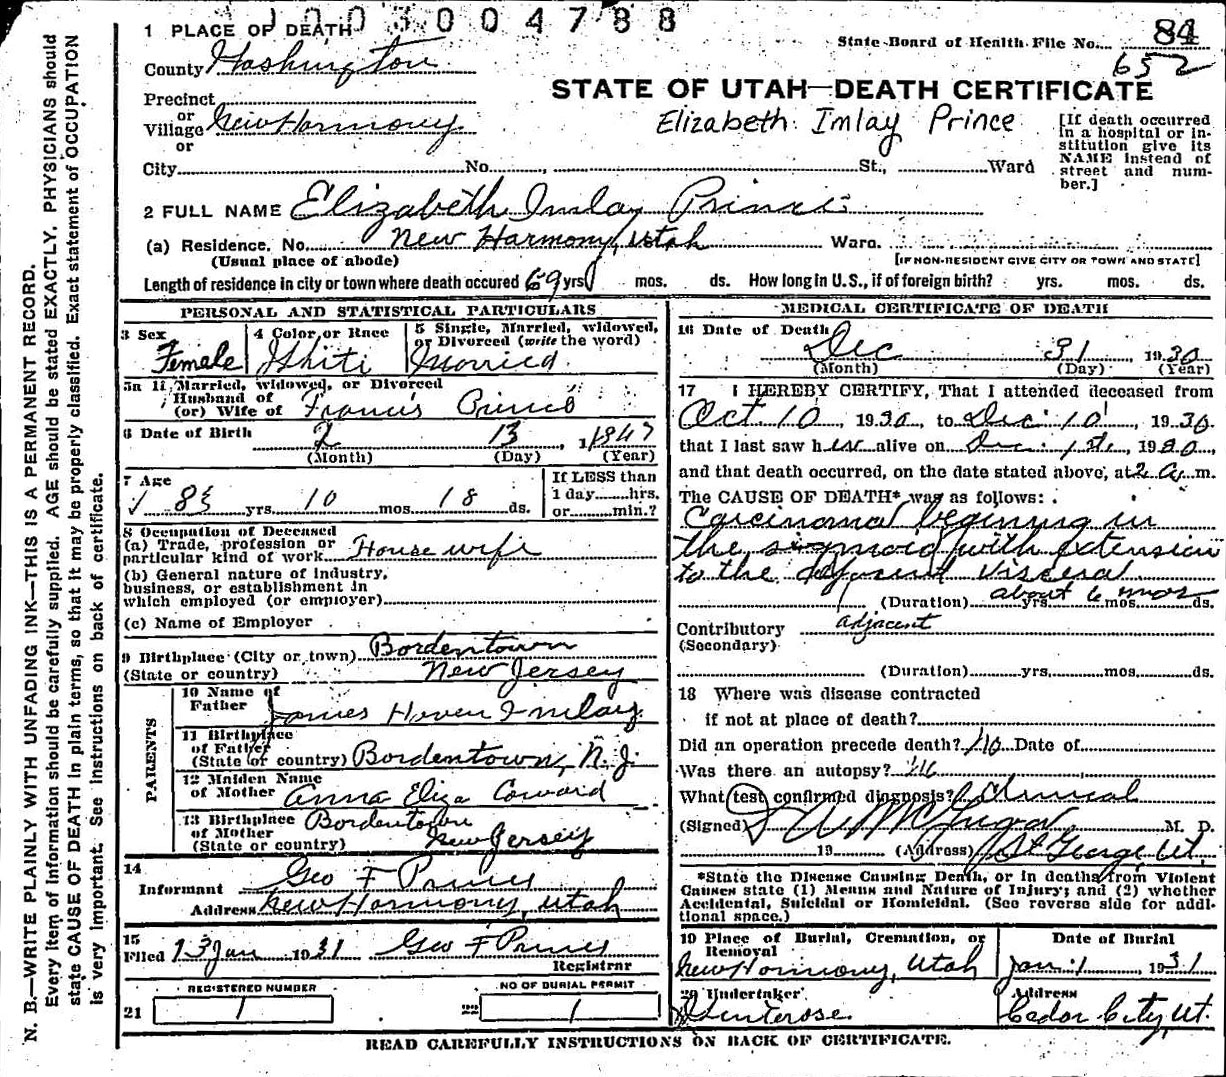 1003004788
84
State Board of Health File No.
652
1 PLACE OF DEATH
County Washington
STATE OF UTAH—DEATH CERTIFICATE
Precinct
or
Village New Harmony
or
Elizabeth Imlay Prince
[If death occurred in a hospital or institution give its NAME instead of street and number.]
City No. St., Ward
2 FULL NAME Elizabeth Imlay Prince
(a) Residence, No. New Harmony, Utah Ward.
(Usual place of abode) [IF NON-RESIDENT GIVE CITY OR TOWN AND STATE]
Length of residence in city or town where death occured 69 yrs. mos. ds. How long in U.S., if of foreign birth? yrs. mos. ds.
PERSONAL AND STATISTICAL PARTICULARS
3 Sex Female
4 Color or Race White
5 Single, Married, widowed, or Divorced (write the word) Married
5a If Married, widowed, or Divorced
Husband of
(or) Wife of Francis Prince
6 Date of Birth 2 13 1847
(Month) (Day) (Year)
7 Age 83 yrs. 10 mos. 18 ds.
If LESS than
1 day hrs.
or min.?
8 Occupation of Deceased
(a) Trade, profession or
particular kind of work House wife
(b) General nature of industry,
business, or establishment in
which employed (or employer)
(c) Name of Employer
9 Birthplace (City or town) Bordentown
(State or country) New Jersey
PARENTS
10 Name of
Father James Haven Imlay
11 Birthplace
of Father
(State or country) Bordentown, N.J.
12 Maiden Name
of Mother Anna Eliza Coward
13 Birthplace Bordentown
of Mother New Jersey
(State or country)
14
Informant Geo F Prince
Address New Harmony, Utah
15
Filed 13 Jan 1931 Geo F Prince
Registrar
REGISTERED NUMBER
21 1
NO OF BURIAL PERMIT
22 1
MEDICAL CERTIFICATE OF DEATH
16 Date of Death Dec 31 1930
(Month) (Day) (Year)
17 I HEREBY CERTIFY, That I attended deceased from
Oct 10, 1930, to Dec 10, 1930.
that I last saw her alive on Dec 1st, 1930,
and that death occurred, on the date stated above, at 2 a m.
The CAUSE OF DEATH* was as follows:
Carcinoma beginning in
the sigmoid with extension
to the adjacent viscera
(Duration) about yrs. 6 mos ds.
Contributory adjacent
(Secondary)
(Duration) yrs. mos. ds.
18 Where was disease contracted
if not at place of death?
Did an operation precede death? no Date of
Was there an autopsy? no
What test confirmed diagnosis? Clinical
(Signed) M. D.
19 (Address) St George Ut.
*State the Disease Causing Death, or in deaths from Violent
Causes state (1) Means and Nature of Injury; and (2) whether
Accidental, Suicidal or Homicidal. (See reverse side for additional space.)
19 Place of Burial, Cremation, or
Removal
New Harmony, Utah
Date of Burial
Jan 1 1931
20 Undertaker
Address
Cedar City, Ut.
READ CAREFULLY INSTRUCTIONS ON BACK OF CERTIFICATE.
N. B.—WRITE PLAINLY WITH UNFADING INK—THIS IS A PERMANENT RECORD.
Every item of information should be carefully supplied. AGE should be stated EXACTLY. PHYSICIANS should
state CAUSE OF DEATH in plain terms, so that it may be properly classified. Exact statement of OCCUPATION
is very important. See instructions on back of certificate.